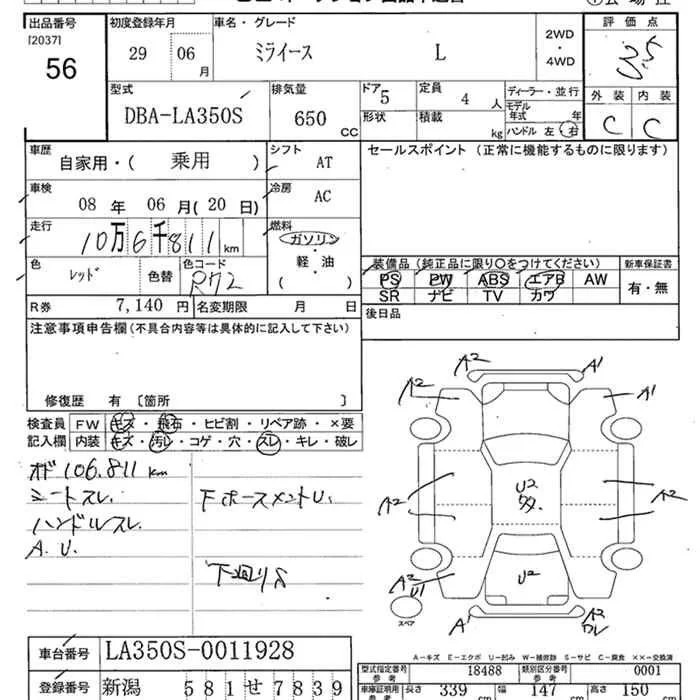 出品番号
[2037]
56
初度登録年月
29 06
月
車名・グレード
ミライース L
2WD
・
4WD
評価点
3.5
型式
DBA-LA350S
排気量
650
CC
ドア
5
定員
4 人
形状
積載
kg
ディーラー・並行
モデル
年式 年
ハンドル 左 右
外装 内装
C C
車歴
自家用・( 乗用 )
シフト
AT
車検
08 年 06 月(20 日)
冷房
AC
走行
10万6千811km
燃料
ガソリン
・
軽・油
( )
色
レッド
色替
色コード
R72
R券
7,140 円
名変期限 月 日
セールスポイント(正常に機能するものに限ります)
装備品(純正品に限り○をつけてください)
PS PW ABS エアB AW
SR ナビ TV カワ
新車保証書
有・無
後日品
注意事項申告欄(不具合内容等は具体的に記入して下さい)
修復歴 有 〔箇所 〕
検査員 FW キズ・飛石・ヒビ割・リペア跡・×要
記入欄 内装 キズ・汚レ・コゲ・穴・スレ・キレ・破レ
オド 106.811 km
シートスレ.
ハンドルスレ.
A. U.
下ホースメントU.
下廻りS
A2 A1
A2 A1
A2 U2 A2
多.
A2 U2
U1
A1 A2
ワレ
スペア
A-キズ E-エクボ U-凹み W-補修跡 S-サビ C-腐食 XX-交換済
車台番号
LA350S-0011928
登録番号
新潟 581せ7839
型式指定番号
参考
18488
類別区分番号
参考
0001
車庫証明用
参考
長さ 339 cm
幅 147 cm
高さ 150 cm